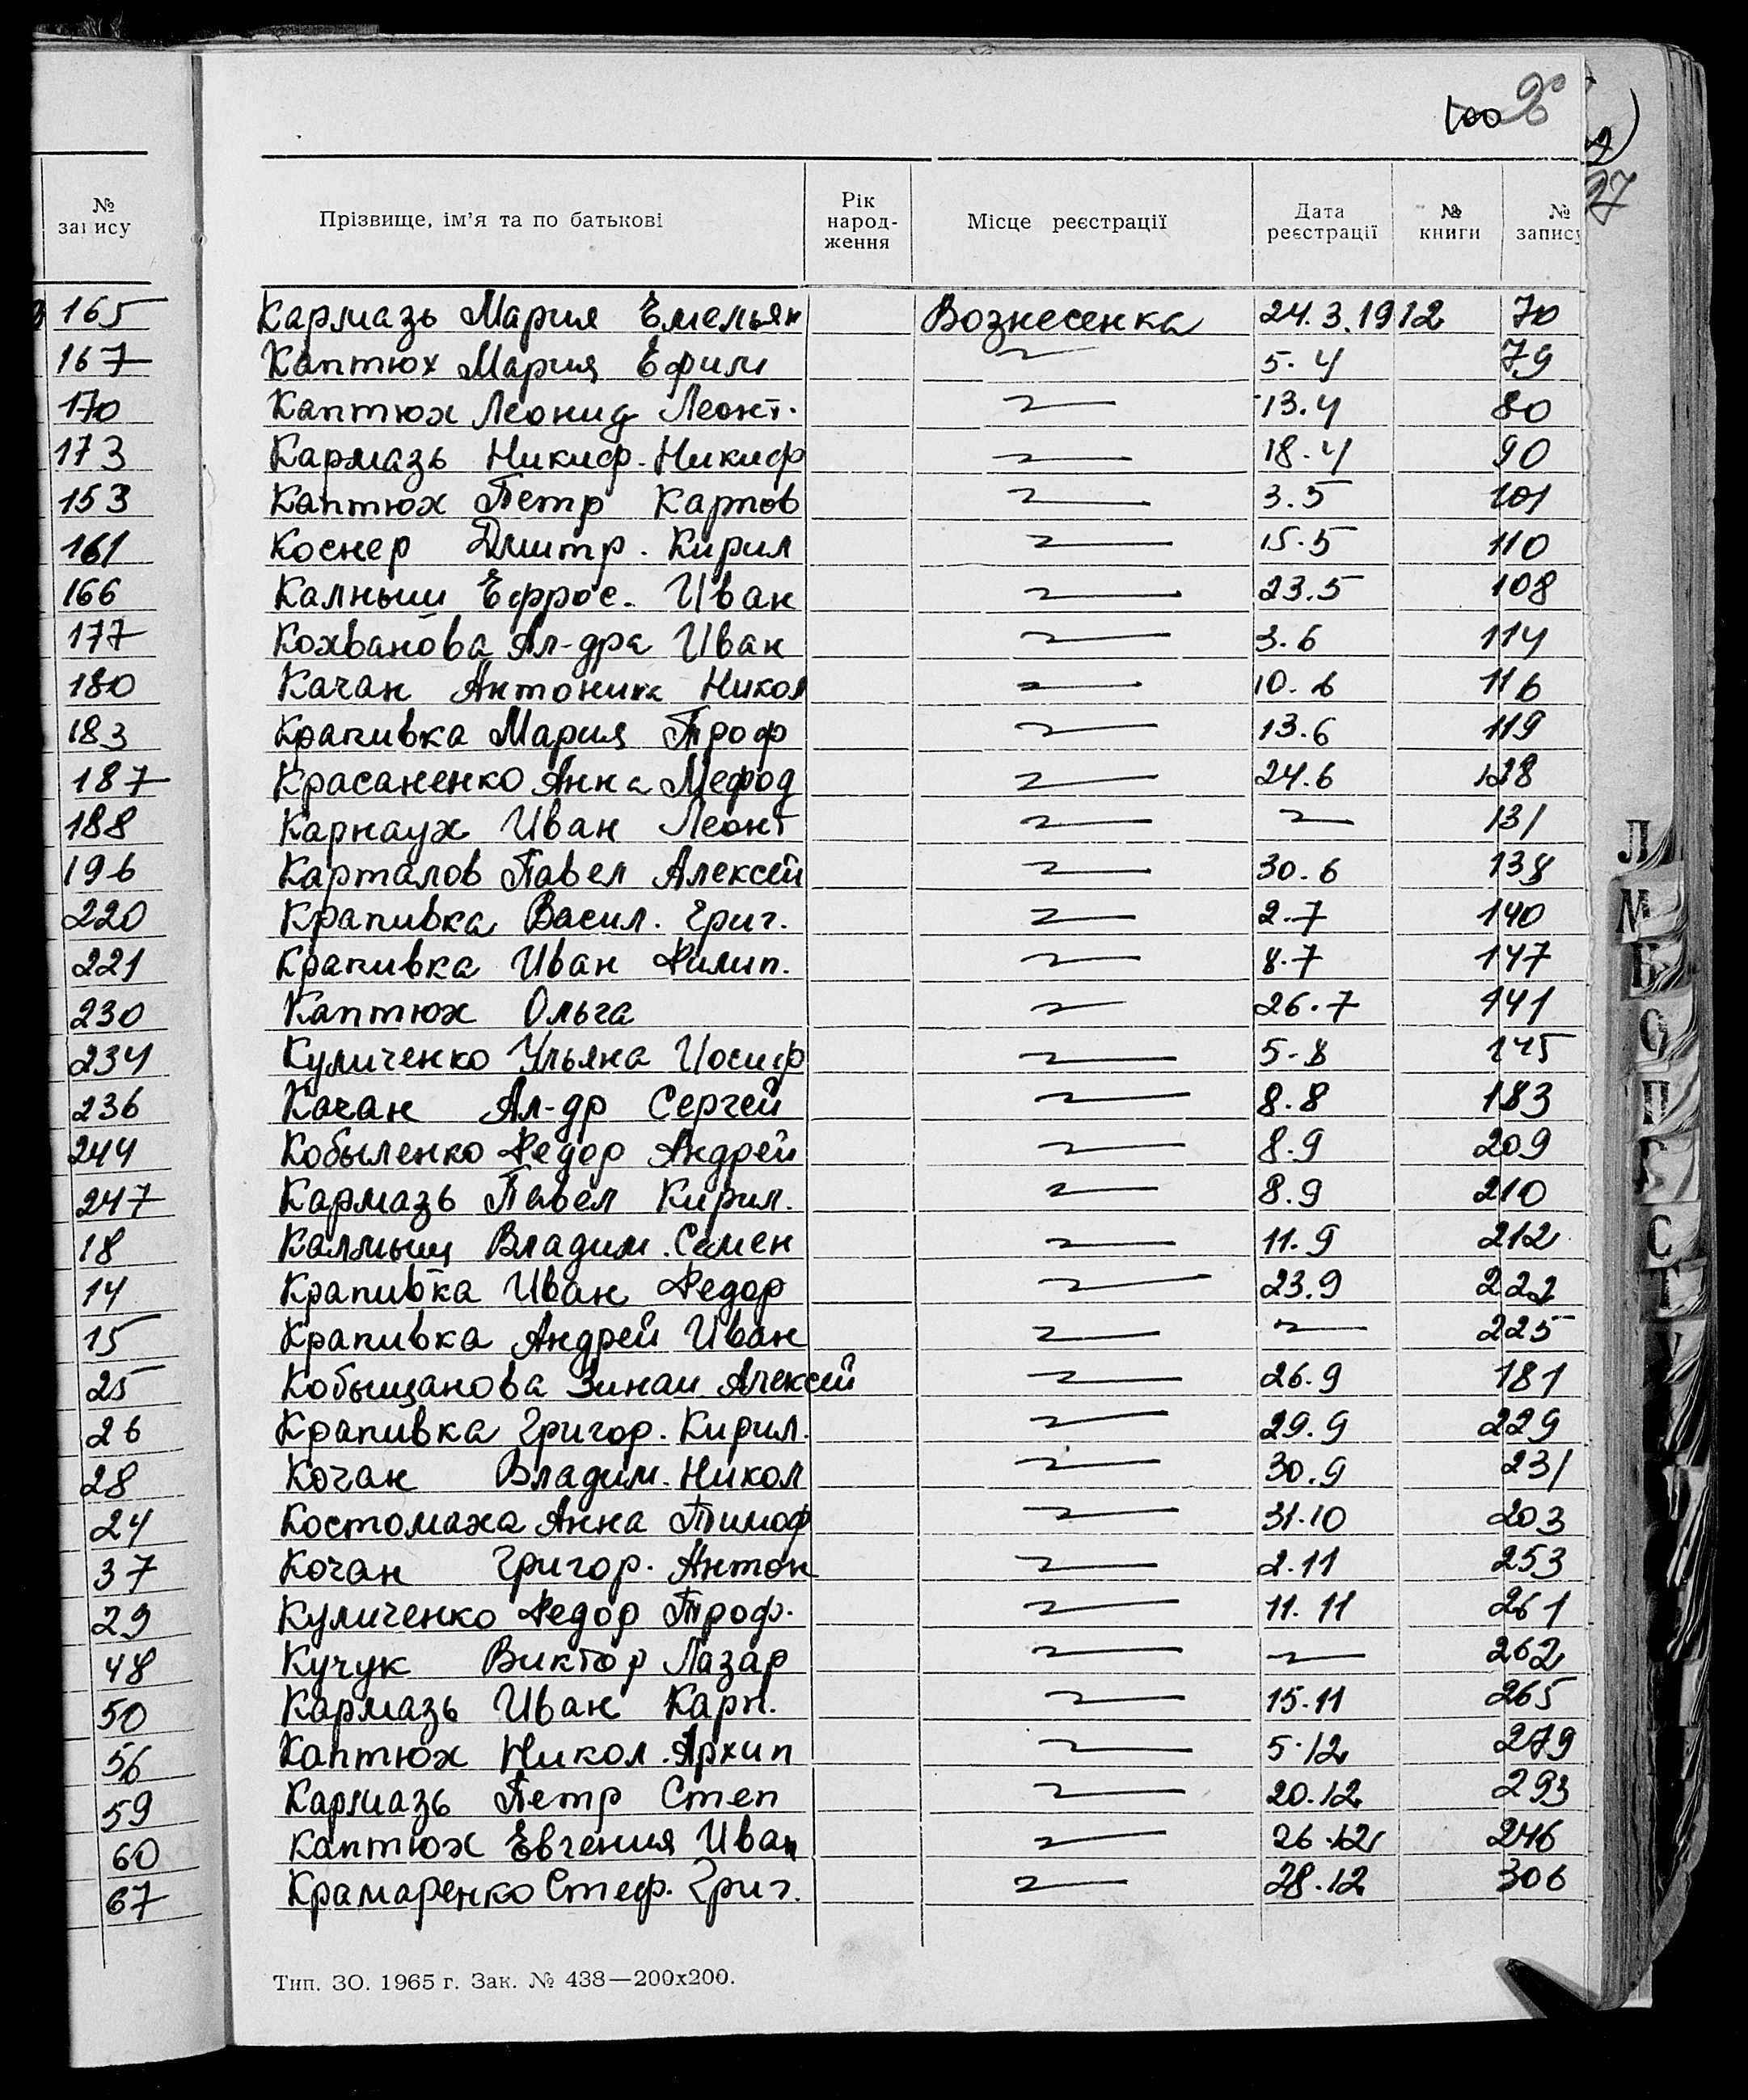 100
№
запису
Прізвище, ім'я та по батькові
Рік народ-ження
Місце реєстрації
Дата реєстрації
№ книги
№ запису
97
165 Кармазь Мария Емельян Вознесенка 24.3.1912 70
167 Каптюх Мария Ефим 5.4 79
170 Каптюх Леонид Леонт. 13.4 80
173 Кармазь Никиф. Никиф 18.4 90
153 Каптюх Петр Карпов 3.5 101
161 Коснер Дмитр. Кирил 15.5 110
166 Калныш Ефрос. Иван 23.5 108
177 Кохванова Ал-дра Иван 3.6 114
180 Качан Антонина Никол 10.6 116
183 Крапивка Мария Троф 13.6 119
187 Красаненко Анна Мефод 24.6 128
188 Карнаух Иван Леонт 131
196 Карталов Павел Алексей 30.6 138
220 Крапивка Васил. Григ. 2.7 140
221 Крапивка Иван Филип. 8.7 147
230 Каптюх Ольга 26.7 141
234 Куличенко Ульяна Иосиф 5.8 145
236 Качан Ал-др Сергей 8.8 183
244 Кобыленко Федор Андрей 8.9 209
247 Кармазь Павел Кирил. 8.9 210
18 Калмыщ Владим. Семен 11.9 212
14 Крапивка Иван Федор 23.9 222
15 Крапивка Андрей Иван 225
25 Кобыщанова Зинаи Алексей 26.9 181
26 Крапивка Григор. Кирил. 29.9 229
28 Кочан Владим. Никол 30.9 231
24 Костомаха Анна Тимоф 31.10 203
37 Кочан Григор. Антон 2.11 253
29 Куличенко Федор Троф. 11.11 261
48 Кучук Виктор Лазар 262
50 Кармазь Иван Карп. 15.11 265
56 Каптюх Никол. Архип 5.12 279
59 Кармазь Петр Степ 20.12 293
60 Каптюх Евгения Иван 26.12 246
67 Крамаренко Стеф. Григ. 28.12 306
Тип. ЗО. 1965 г. Зак. № 438—200х200.
Л
М
О
П
С
Т
У